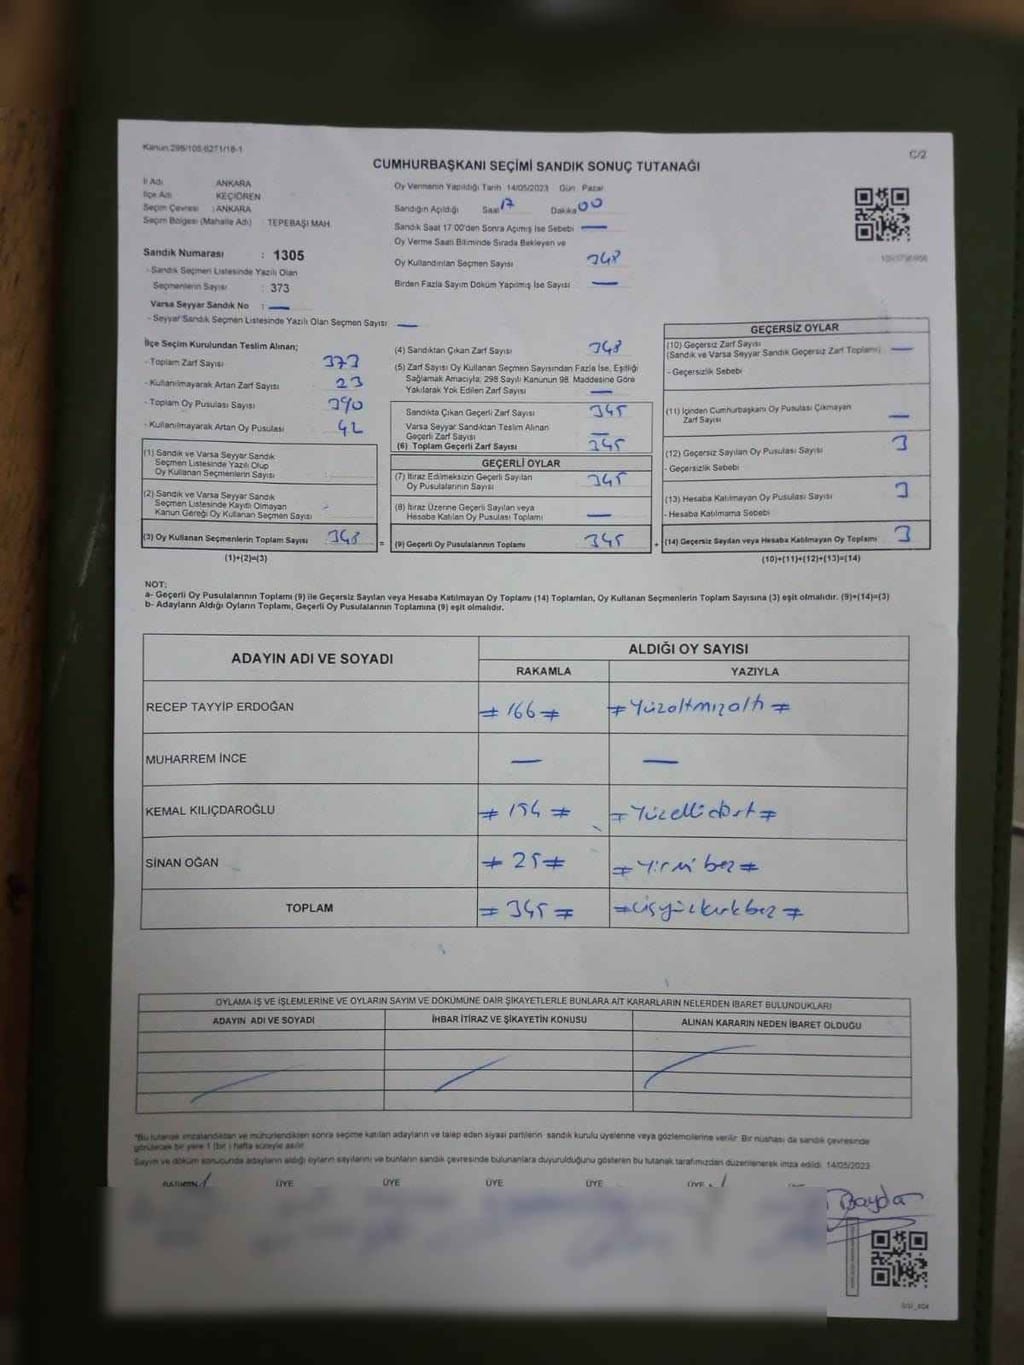 Kanun:298/105,6271/18-1
C/2
CUMHURBAŞKANI SEÇİMİ SANDIK SONUÇ TUTANAĞI
İl Adı : ANKARA
İlçe Adı : KEÇİÖREN
Seçim Çevresi : ANKARA
Seçim Bölgesi (Mahalle Adı) : TEPEBAŞI MAH.
Sandık Numarası : 1305
- Sandık Seçmen Listesinde Yazılı Olan
Seçmenlerin Sayısı : 373
Varsa Seyyar Sandık No : —
- Seyyar Sandık Seçmen Listesinde Yazılı Olan Seçmen Sayısı : —
Oy Vermenin Yapıldığı Tarih 14/05/2023 Gün Pazar
Sandığın Açıldığı Saat 17 Dakika 00
Sandık Saat 17 00'den Sonra Açımış İse Sebebi —
Oy Verme Saati Bitiminde Sırada Bekleyen ve
Oy Kullandırılan Seçmen Sayısı 348
Birden Fazla Sayım Döküm Yapılmış İse Sayısı —
İlçe Seçim Kurulundan Teslim Alınan;
- Toplam Zarf Sayısı 373
- Kullanılmayarak Artan Zarf Sayısı 23
- Toplam Oy Pusulası Sayısı 390
- Kullanılmayarak Artan Oy Pusulası 42
(1) Sandık ve Varsa Seyyar Sandık
Seçmen Listesinde Yazılı Olup
Oy Kullanan Seçmenlerin Sayısı
(2) Sandık ve Varsa Seyyar Sandık
Seçmen Listesinde Kayıtlı Olmayan
Kanun Gereği Oy Kullanan Seçmen Sayısı
(3) Oy Kullanan Seçmenlerin Toplam Sayısı 348
(1)+(2)=(3)
(4) Sandıktan Çıkan Zarf Sayısı 348
(5) Zarf Sayısı Oy Kullanan Seçmen Sayısından Fazla İse, Eşitliği
Sağlamak Amacıyla; 298 Sayılı Kanunun 98. Maddesine Göre
Yakılarak Yok Edilen Zarf Sayısı —
Sandıkta Çıkan Geçerli Zarf Sayısı 345
Varsa Seyyar Sandıktan Teslim Alınan
Geçerli Zarf Sayısı —
(6) Toplam Geçerli Zarf Sayısı 345
GEÇERLİ OYLAR
(7) İtiraz Edilmeksizin Geçerli Sayılan
Oy Pusulalarının Sayısı 345
(8) İtiraz Üzerine Geçerli Sayılan veya
Hesaba Katılan Oy Pusulası Toplamı —
= (9) Geçerli Oy Pusulalarının Toplamı 345
GEÇERSİZ OYLAR
(10) Geçersiz Zarf Sayısı
(Sandık ve Varsa Seyyar Sandık Geçersiz Zarf Toplamı) —
- Geçersizlik Sebebi
(11) İçinden Cumhurbaşkanı Oy Pusulası Çıkmayan
Zarf Sayısı —
(12) Geçersiz Sayılan Oy Pusulası Sayısı 3
- Geçersizlik Sebebi
(13) Hesaba Katılmayan Oy Pusulası Sayısı 3
- Hesaba Katılmama Sebebi
+ (14) Geçersiz Sayılan veya Hesaba Katılmayan Oy Toplamı 3
(10)+(11)+(12)+(13)=(14)
NOT:
a- Geçerli Oy Pusulalarının Toplamı (9) ile Geçersiz Sayılan veya Hesaba Katılmayan Oy Toplamı (14) Toplamları, Oy Kullanan Seçmenlerin Toplam Sayısına (3) eşit olmalıdır. (9)+(14)=(3)
b- Adayların Aldığı Oyların Toplamı, Geçerli Oy Pusulalarının Toplamına (9) eşit olmalıdır.
ADAYIN ADI VE SOYADI ALDIĞI OY SAYISI
RAKAMLA YAZIYLA
RECEP TAYYİP ERDOĞAN =166= =Yüzaltmışaltı=
MUHARREM İNCE — —
KEMAL KILIÇDAROĞLU =154= =Yüzellidört=
SİNAN OĞAN =25= =Yirmi beş=
TOPLAM =345= =üçyüzkırkbeş=
OYLAMA İŞ VE İŞLEMLERİNE VE OYLARIN SAYIM VE DÖKÜMÜNE DAİR ŞİKAYETLERLE BUNLARA AİT KARARLARIN NELERDEN İBARET BULUNDUKLARI
ADAYIN ADI VE SOYADI İHBAR İTİRAZ VE ŞİKAYETİN KONUSU ALINAN KARARIN NEDEN İBARET OLDUĞU
*Bu tutanak imzalandıktan ve mühürlendikten sonra seçime katılan adayların ve talep eden siyasi partilerin sandık kurulu üyelerine veya gözlemcilerine verilir. Bir nüshası da sandık çevresinde
görülecek bir yere 1 (bir) hafta süreyle asılır.
Sayım ve döküm sonucunda adayların aldığı oyların sayılarını ve bunların sandık çevresinde bulunanlara duyurulduğunu gösteren bu tutanak tarafımızdan düzenlenerek imza edildi. 14/05/2023
BAŞKAN ÜYE ÜYE ÜYE ÜYE ÜYE
Baydar